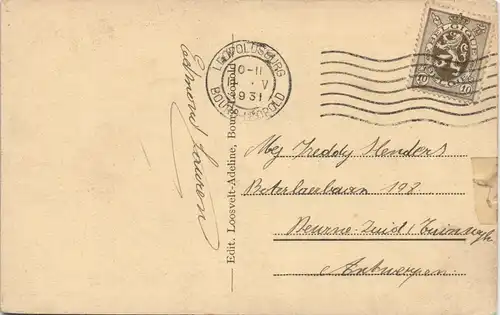 Edmond Lauren
Edit. Loosvelt-Adeline, Bourg-Léopold
LEOPOLDSBURG
10-11
V
1931
BOURG-LEOPOLD
BELGIQUE
10 10
Mej Freddy Henders
Boterlaerbaan 198
Deurne-Zuid
Antwerpen